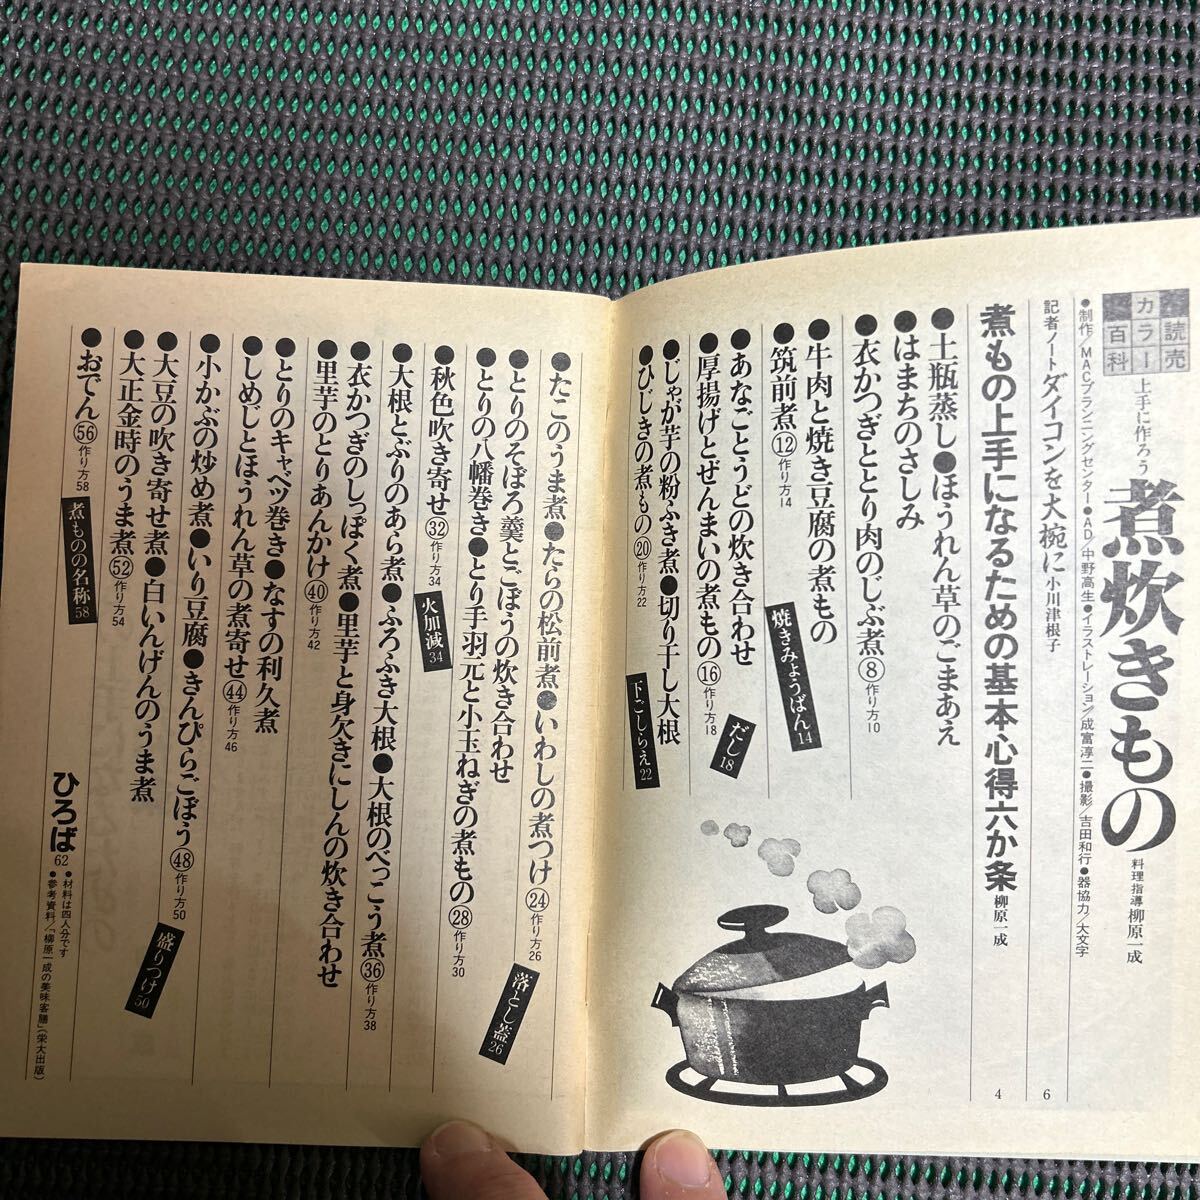 読売
カラー
百科
上手に作ろう
煮炊きもの
料理指導 柳原一成
●制作/MACプランニングセンター●AD/中野高生●イラストレーション/成富淳二●撮影/吉田和行●器協力/大文字
記者ノート ダイコンを大椀に 小川津根子 6
煮もの上手になるための基本心得六か条 柳原一成 4
●土瓶蒸し●ほうれん草のごまあえ
●はまちのさしみ
●衣かつぎととり肉のじぶ煮⑧作り方10
●牛肉と焼き豆腐の煮もの
●筑前煮⑫作り方14
焼きみょうばん14
●あなごとうどの炊き合わせ
●厚揚げとぜんまいの煮もの⑯作り方18
だし18
●じゃが芋の粉ふき煮●切り干し大根
●ひじきの煮もの⑳作り方22
下ごしらえ22
●たこのうま煮●たらの松前煮●いわしの煮つけ㉔作り方26
落とし蓋26
●とりのそぼろ羹とごぼうの炊き合わせ
●とりの八幡巻き●とり手羽元と小玉ねぎの煮もの㉘作り方30
●秋色吹き寄せ㉜作り方34
火加減34
●大根とぶりのあら煮●ふろふき大根●大根のべっこう煮㊱作り方38
●衣かつぎのしっぽく煮●里芋と身欠きにしんの炊き合わせ
●里芋のとりあんかけ㊵作り方42
●とりのキャベツ巻き●なすの利久煮
●しめじとほうれん草の煮寄せ㊹作り方46
●小かぶの炒め煮●いり豆腐●きんぴらごぼう㊽作り方50
盛りつけ50
●大豆の吹き寄せ煮●白いんげんのうま煮
●大正金時のうま煮52作り方54
●おでん56作り方58
煮ものの名称58
ひろば62
●材料は四人分です
●参考資料/「柳原一成の美味客膳」(栄大出版)